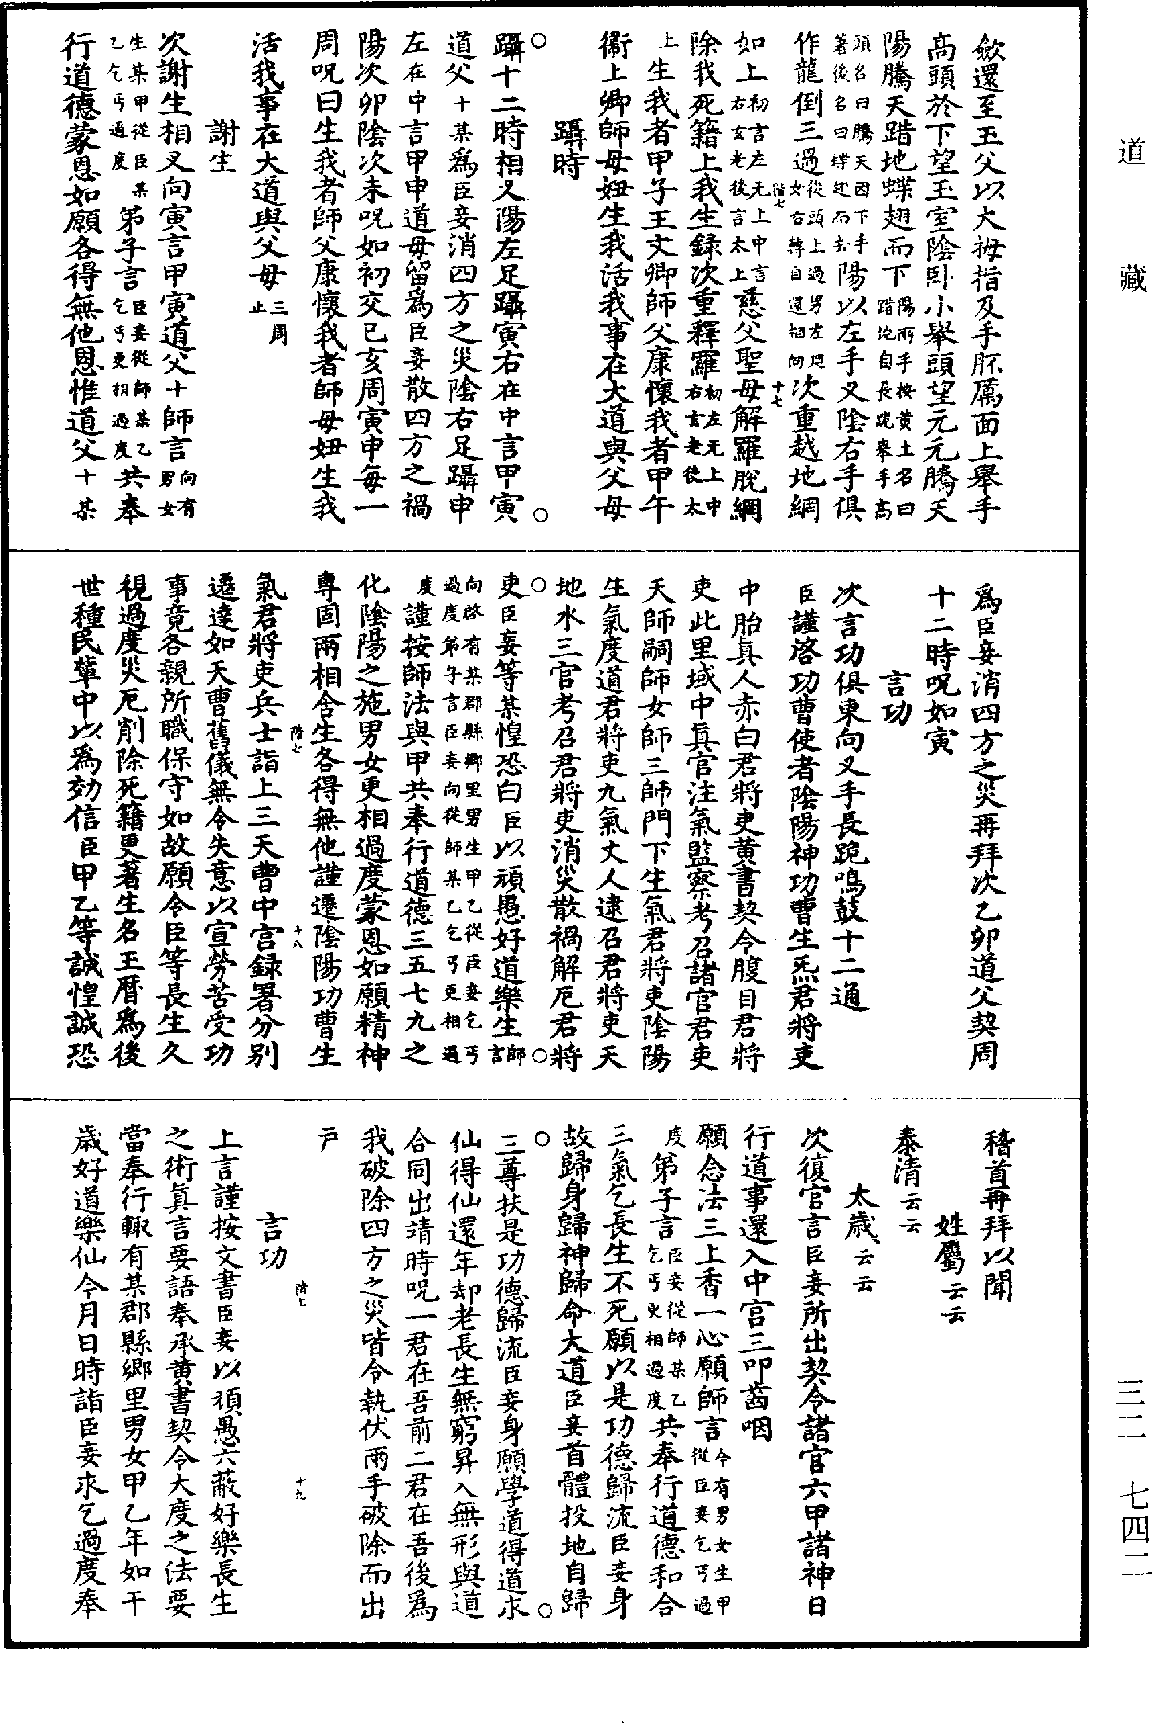 道藏
三二 七四二
歛還至玉父以大拇指及手厤厲面上舉手
高頭於下望玉室陰卧小舉頭望元元騰天
陽騰天踖地蝶翅而下陽兩手按黄土名曰踖地自長跪舉手高
頭名曰騰天因下手著後名曰而去陽以左手叉陰右手俱
作龍倒三過從頭上過男左廻女右轉自還相向次重越地網
如上初言左无上中言右玄老後言太上慈父聖母解羅脫網
除我死籍上我生録次重釋羅初左无上中右言老後太
上生我者甲子王文卿師父康懷我者甲午
衞上卿師母妞生我活我事在大道與父母
躡時
躡十二時相叉陽左足躡寅右在中言甲寅
道父十某爲臣妾消四方之災陰右足躡申
左在中言甲申道母留爲臣妾散四方之禍
陽次卯陰次未呪如初交巳亥周寅申每一
周呪曰生我者師父康懷我者師母妞生我
活我事在大道與父母三周止
謝生
次謝生相叉向寅言甲寅道父十師言向有男女
生某甲從臣某乙乞丐過度弟子言臣妾從師某乙乞丐更相過度共奉
行道德蒙恩如願各得無他恩惟道父十某
爲臣妾消四方之災再拜次乙卯道父契周
十二時呪如寅
言功
次言功俱東向叉手長跪鳴鼓十二通
臣謹啓功曹使者陰陽神功曹生炁君將吏
中胎真人赤白君將吏黄書契令腹目君將
吏此里域中真官注氣監察考召諸官君吏
天師嗣師女師三師門下生氣君將吏陰陽
生氣度道君將吏九氣丈人逮召君將吏天
地水三官考召君將吏消災散禍解厄君將
吏臣妾等某惶恐白臣以頑愚好道樂生師言
向啓有某郡縣鄉里男生甲乙從臣妾乞丐過度弟子言臣妾向從師某乙乞丐更相過
度謹按師法與甲共奉行道德三五七九之
化陰陽之施男女更相過度蒙恩如願精神
專固兩相含生各得無他謹遷陰陽功曹生
氣君將吏兵士詣上三天曹中宫録署分别
遷達如天曹舊儀無令失意以宣勞苦受功
事竟各親所職保守如故願令臣等長生久
視過度災厄削除死籍更著生名玉曆爲後
世種民輩中以爲効信臣甲乙等誠惶誠恐
稽首再拜以聞
姓屬云云
泰清云云
太歲云云
次復官言臣妾所出契令諸官六甲諸神日
行道事還入中宫三叩齒咽
願念法三上香一心願師言今有男女生甲從臣妾乞丐過
度弟子言臣妾從師某乙乞丐更相過度共奉行道德和合
三氣乞長生不死願以是功德歸流臣妾身
故歸身歸神歸命大道臣妾首體投地自歸
三尊扶是功德歸流臣妾身願學道得道求
仙得仙還年却老長生無窮昇入無形與道
合同出靖時呪一君在吾前二君在吾後爲
我破除四方之災皆令執伏兩手破除而出
戸
言功
上言謹按文書臣妾以頑愚六蔽好樂長生
之術真言要語奉承黄書契令大度之法要
當奉行輙有某郡縣鄉里男女甲乙年如干
歲好道樂仙今月日時詣臣妾求乞過度奉